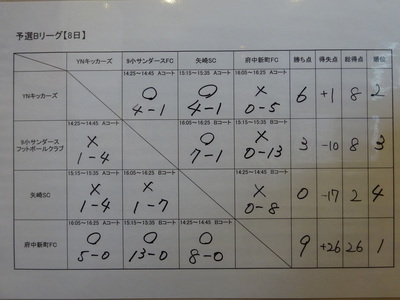 予選Bリーグ【8日】
YNキッカーズ 9小サンダースFC 矢崎SC 府中新町FC 勝ち点 得失点 総得点 順位
14:25～14:45 Aコート 15:15～15:35 Aコート 16:05～16:25 Aコート
YNキッカーズ ○ ○ × 6 +1 8 2
4-1 4-1 0-5
14:25～14:45 Aコート 16:05～16:25 Bコート 15:15～15:35 Bコート
9小サンダース × ○ × 3 -10 8 3
フットボールクラブ 1-4 7-1 0-13
15:15～15:35 Aコート 16:05～16:25 Bコート 14:25～14:45 Bコート
矢崎SC × × × 0 -17 2 4
1-4 1-7 0-8
16:05～16:25 Aコート 15:15～15:35 Bコート 14:25～14:45 Bコート
府中新町FC ○ ○ ○ 9 +26 26 1
5-0 13-0 8-0